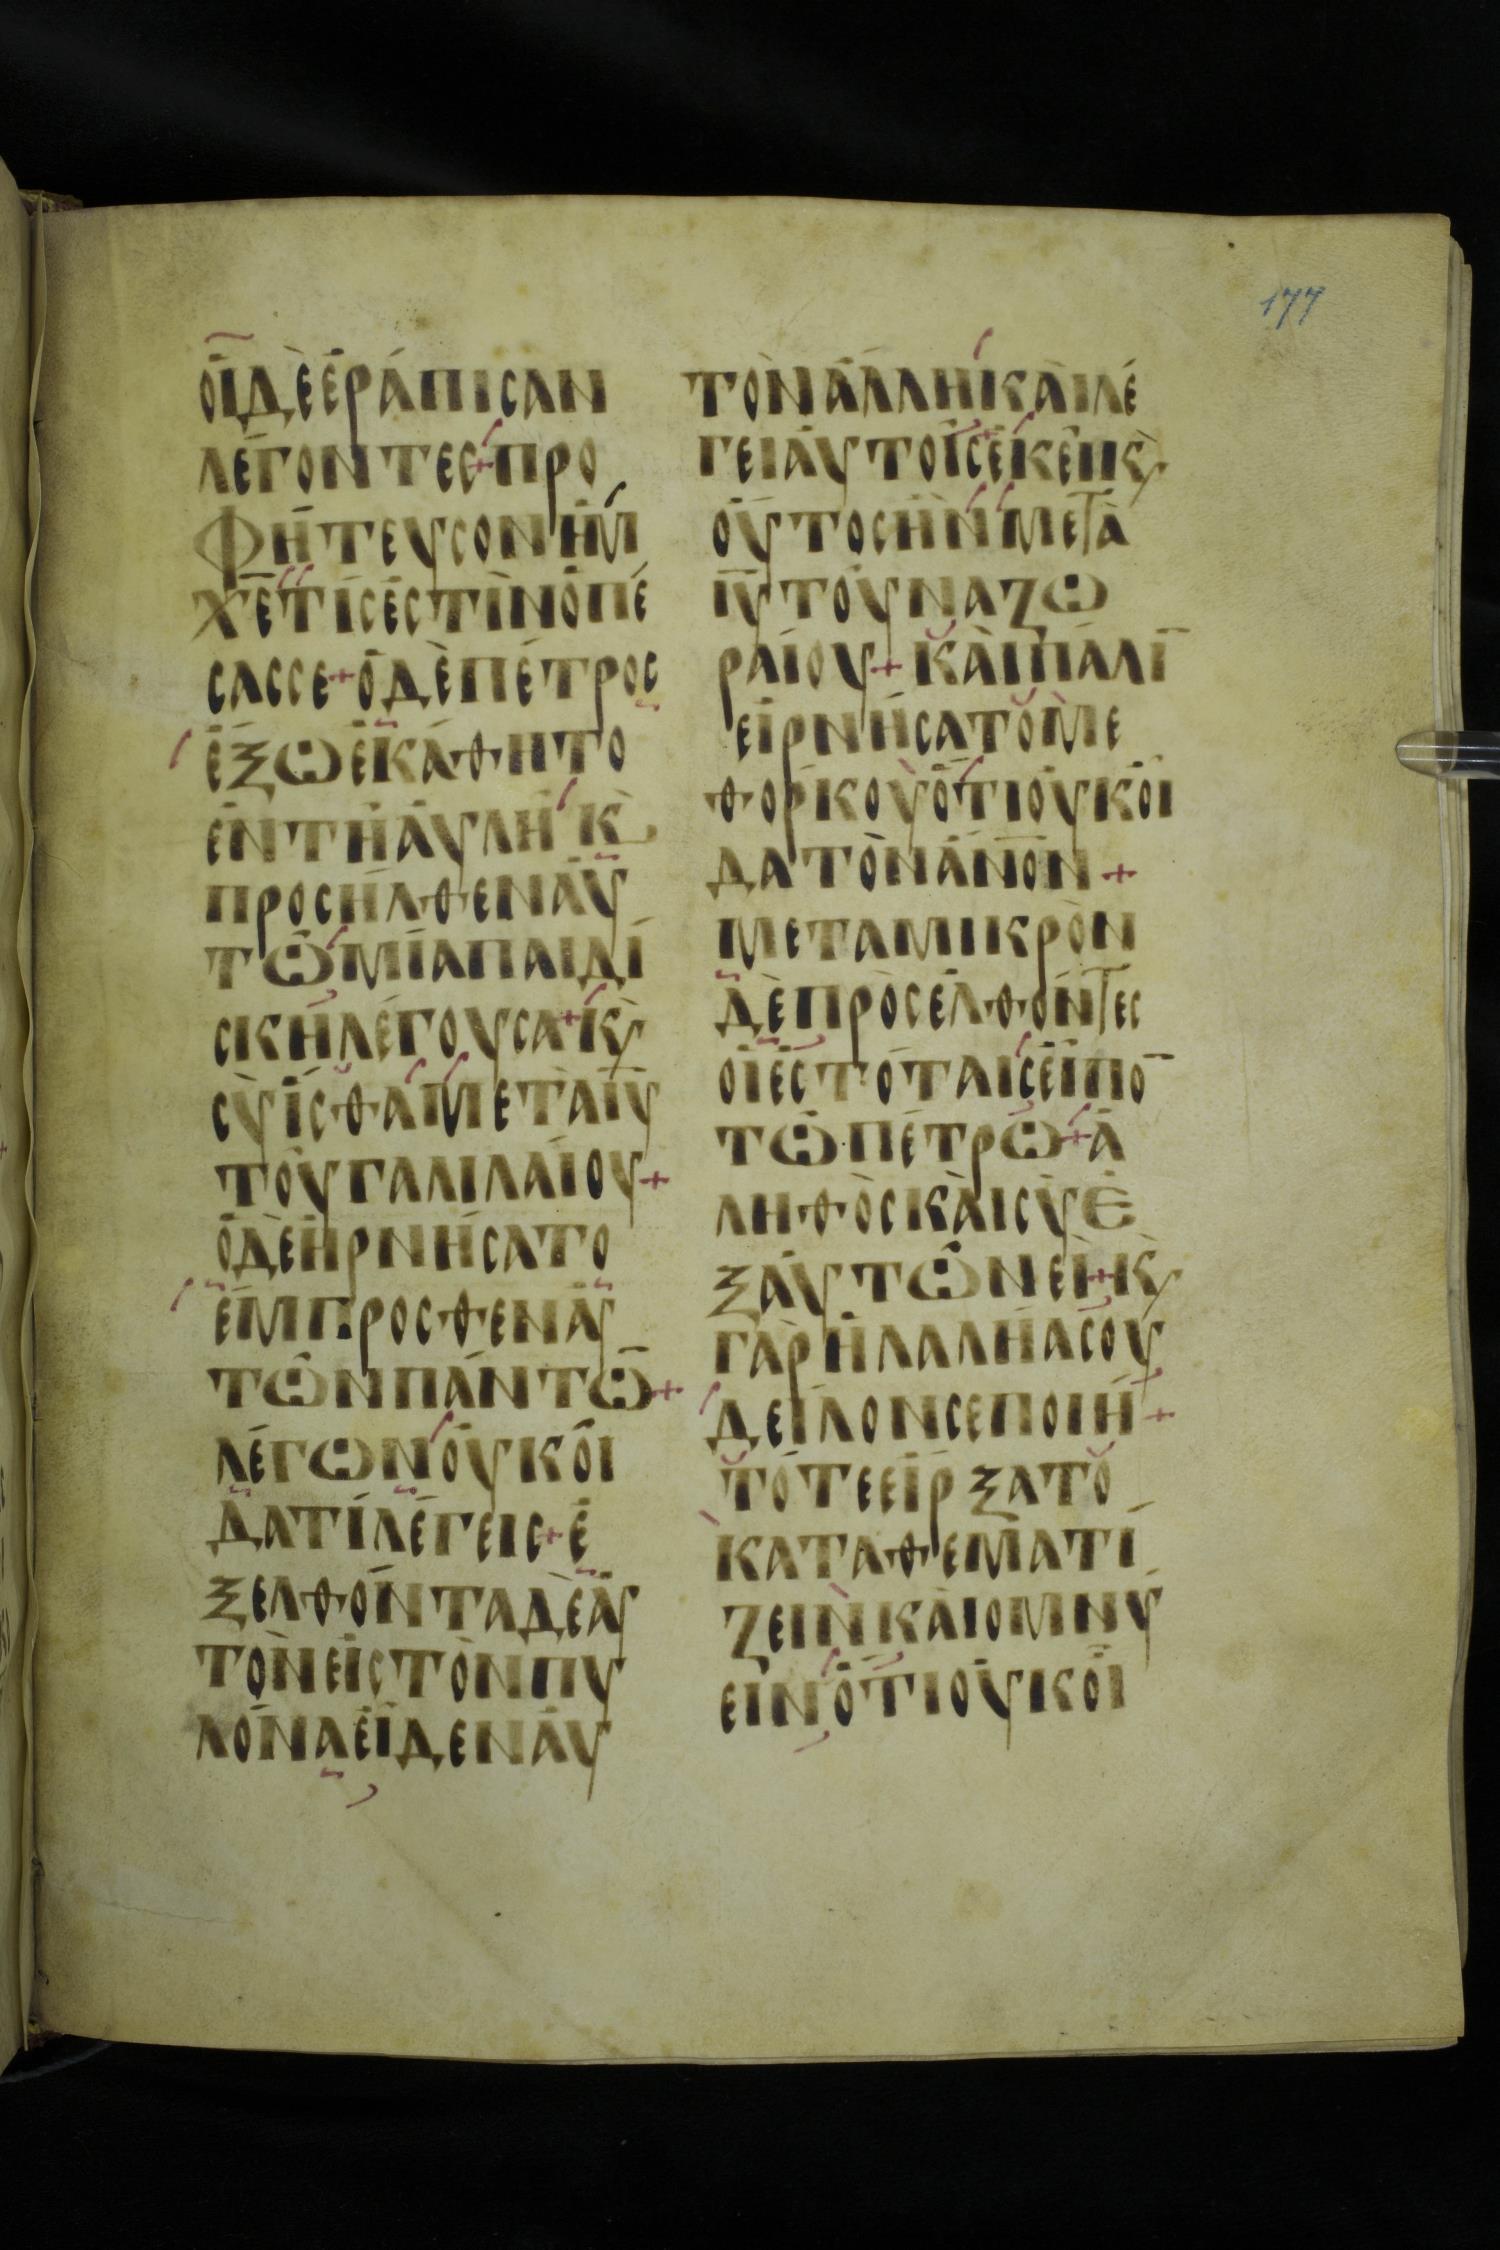 177
ΟΙΔΕΕΡΑΠΙΣΑΝ
ΛΕΓΟΝΤΕΣ+ΠΡΟ
ΦΗΤΕΥΣΟΝΗΜ
Χ̅Ε̅ΤΙΣΕΣΤΙΝΟΠΕ
ΣΑΣΣΕ+ΟΔΕΠΕΤΡΟΣ
ΕΞΩΕΚΑΘΗΤΟ
ΕΝΤΗΑΥΛΗΚ̀
ΠΡΟΣΗΛΘΕΝΑΥ
ΤΩΜΙΑΠΑΙΔΙ
ΣΚΗΛΕΓΟΥΣΑ+Κ̀
ΣΥΙΣΘΑΜΕΤΑΙ̅Υ̅
ΤΟΥΓΑΛΙΛΑΙΟΥ+
ΟΔΕΗΡΝΗΣΑΤΟ
ΕΜΠΡΟΣΘΕΝΑΥ
ΤΩΝΠΑΝΤΩ̅+
ΛΕΓΩΝΟΥΚΟΙ
ΔΑΤΙΛΕΓΕΙΣ+Ε
ΞΕΛΘΟΝΤΑΔΕΑΥ
ΤΟΝΕΙΣΤΟΝΠΥ
ΛΟΝΑΕΙΔΕΝΑΥ
ΤΟΝΑΛΛΗΚΑΙΛΕ
ΓΕΙΑΥΤΟΙΣΕΚΕΙΚ̀
ΟΥΤΟΣΗΝΜΕΤΑ
Ι̅Υ̅ΤΟΥΝΑΖΩ
ΡΑΙΟΥ+ΚΑΙΠΑΛΙ̅
ΕΙΡΝΗΣΑΤΟΜΕ
ΘΟΡΚΟΥΟΤΙΟΥΚΟΙ
ΔΑΤΟΝΑ̅Ν̅Ο̅Ν̅+
ΜΕΤΑΜΙΚΡΟΝ
ΔΕΠΡΟΣΕΛΘΟΝΤΕΣ
ΟΙΕΣΤΟΤΑΙΣΕΙΠΟ̅
ΤΩΠΕΤΡΩ+Α
ΛΗΘΟΣΚΑΙΣΥΕ
ΞΑΥΤΩΝΕΙ+Κ̀
ΓΑΡΗΛΑΛΗΑΣΟΥ
ΔΕΙΛΟΝΣΕΠΟΙΗ+
ΤΟΤΕΕΙΡΞΑΤΟ
ΚΑΤΑΘΕΜΑΤΙ
ΖΕΙΝΚΑΙΟΜΝΥ
ΕΙΝΟΤΙΟΥΚΟΙ